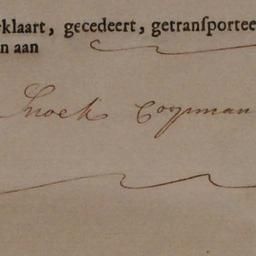 rklaart, gecedeert, getransportee
n aan
Snoek Coopman